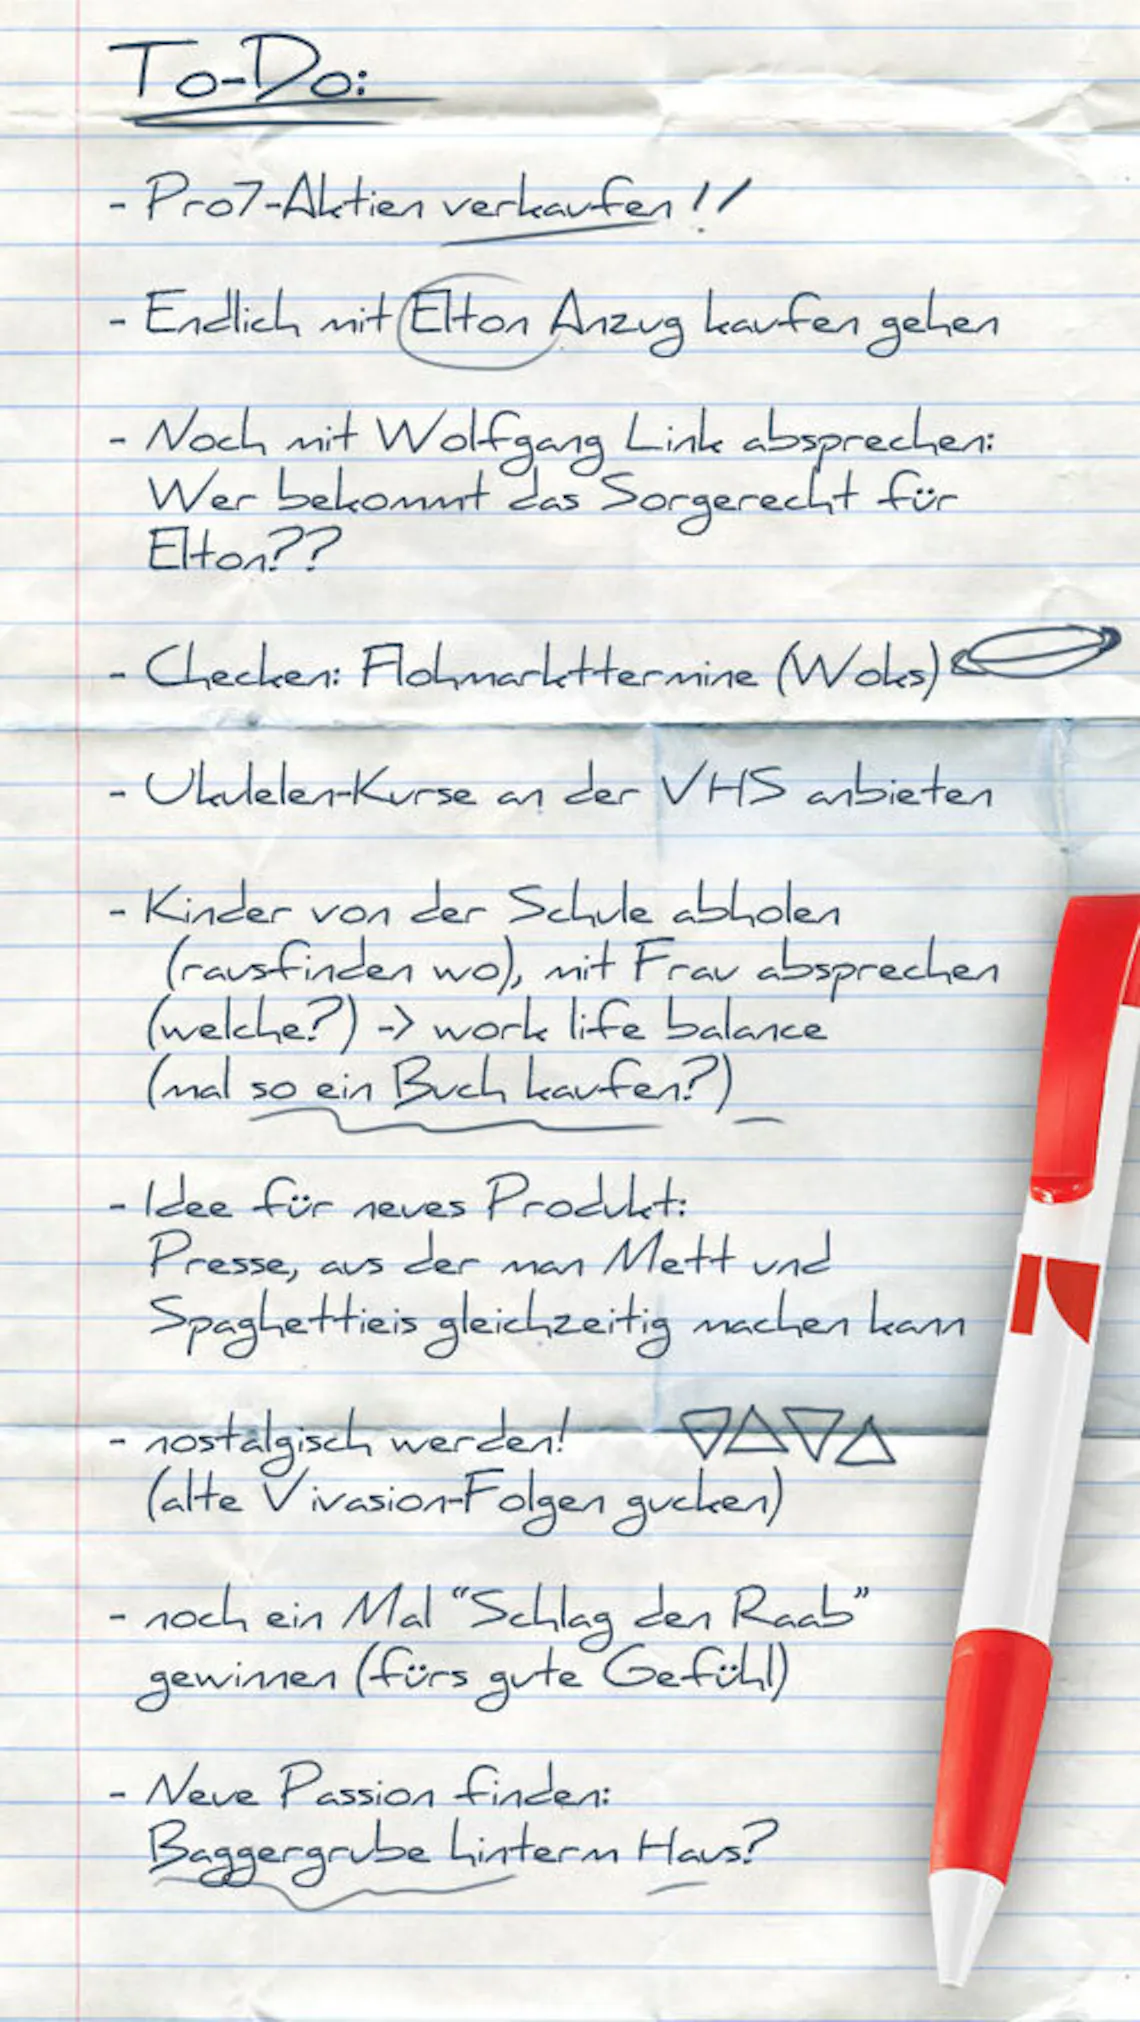 To-Do:
- Pro7-Aktien verkaufen!!
- Endlich mit Elton Anzug kaufen gehen
- Noch mit Wolfgang Link absprechen:
Wer bekommt das Sorgerecht für
Elton??
- Checken: Flohmarkttermine (Woks)
- Ukulelen-Kurse an der VHS anbieten
- Kinder von der Schule abholen
(rausfinden wo), mit Frau absprechen
(welche?) -> work life balance
(mal so ein Buch kaufen?)
- Idee für neues Produkt:
Presse, aus der man Mett und
Spaghettieis gleichzeitig machen kann
- nostalgisch werden!
(alte Vivasion-Folgen gucken)
- noch ein Mal "Schlag den Raab"
gewinnen (fürs gute Gefühl)
- Neue Passion finden:
Baggergrube hinterm Haus?